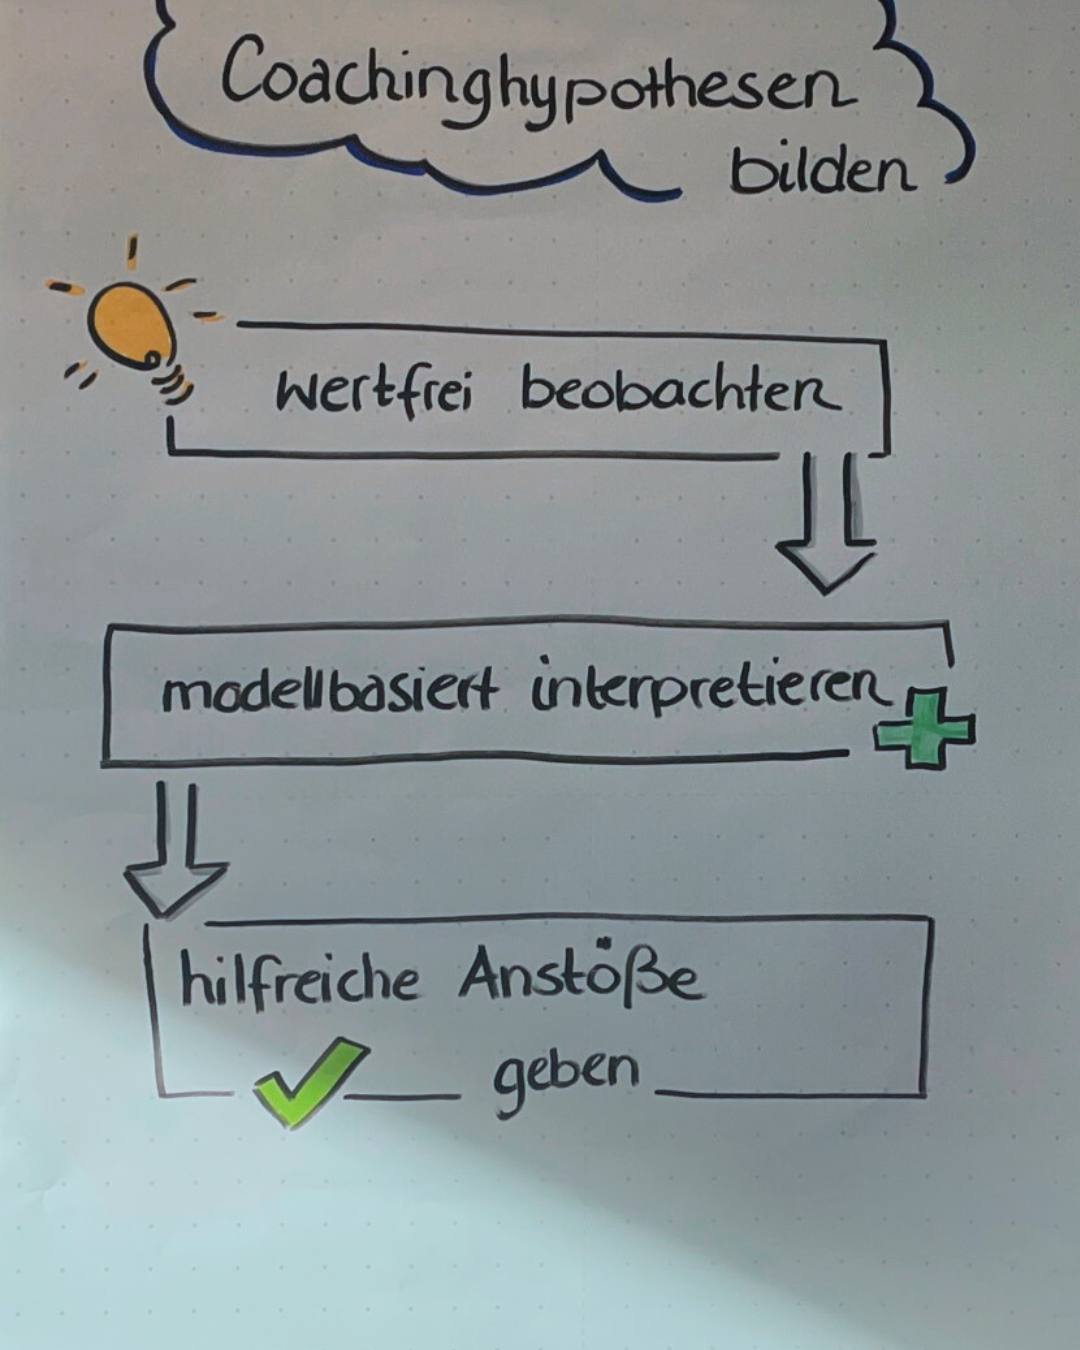 Coachinghypothesen
bilden
wertfrei beobachten
modellbasiert interpretieren
hilfreiche Anstöße
geben